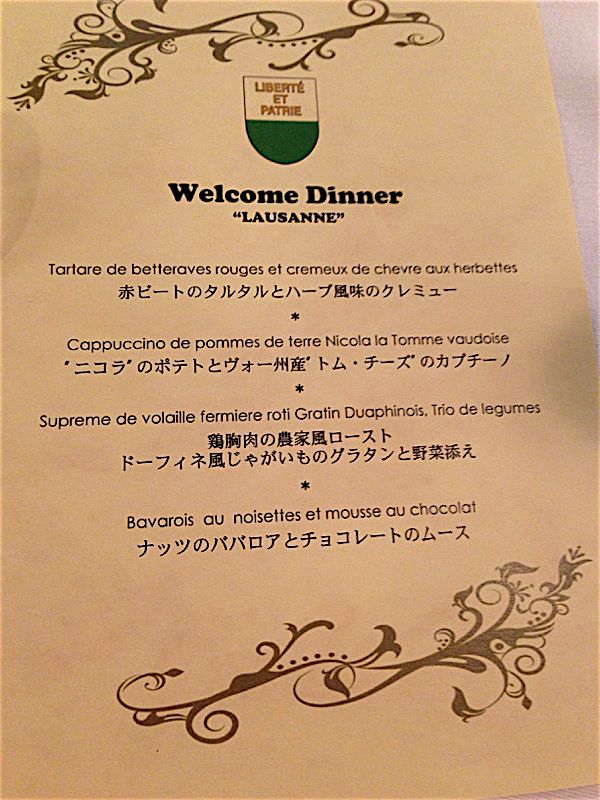 LIBERTÉ
ET
PATRIE
Welcome Dinner
"LAUSANNE"
Tartare de betteraves rouges et cremeux de chevre aux herbettes
赤ビートのタルタルとハーブ風味のクレミュー
*
Cappuccino de pommes de terre Nicola la Tomme vaudoise
"ニコラ"のポテトとヴォー州産"トム・チーズ"のカプチーノ
*
Supreme de volaille fermiere roti Gratin Duaphinois, Trio de legumes
鶏胸肉の農家風ロースト
ドーフィネ風じゃがいものグラタンと野菜添え
*
Bavarois au noisettes et mousse au chocolat
ナッツのババロアとチョコレートのムース